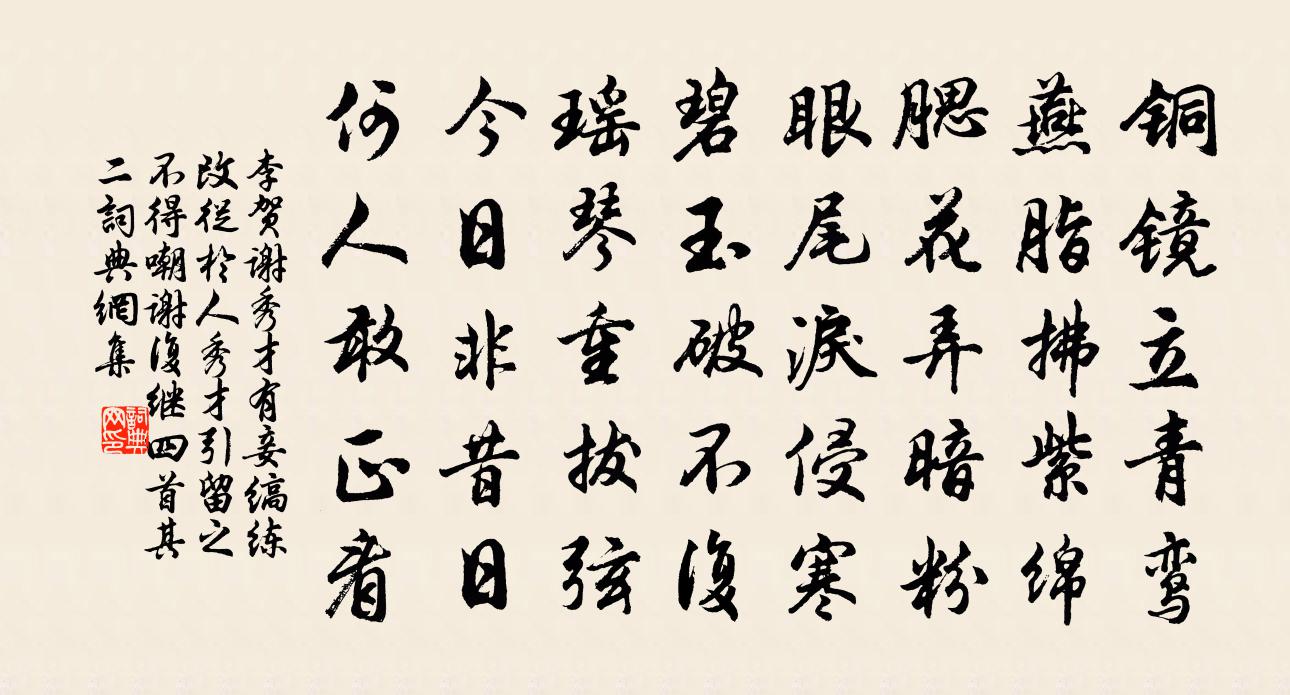 銅镜立青鸾
燕脂拂紫绵
腮花弄暗粉
眼尾淚侵寒
碧玉破不復
瑶琴重拨弦
今日非昔日
何人敢正看
李贺谢秀才有妾缟练
改從於人秀才引留之
不得嘲谢復继四首其
二詞典網集
詞典网印